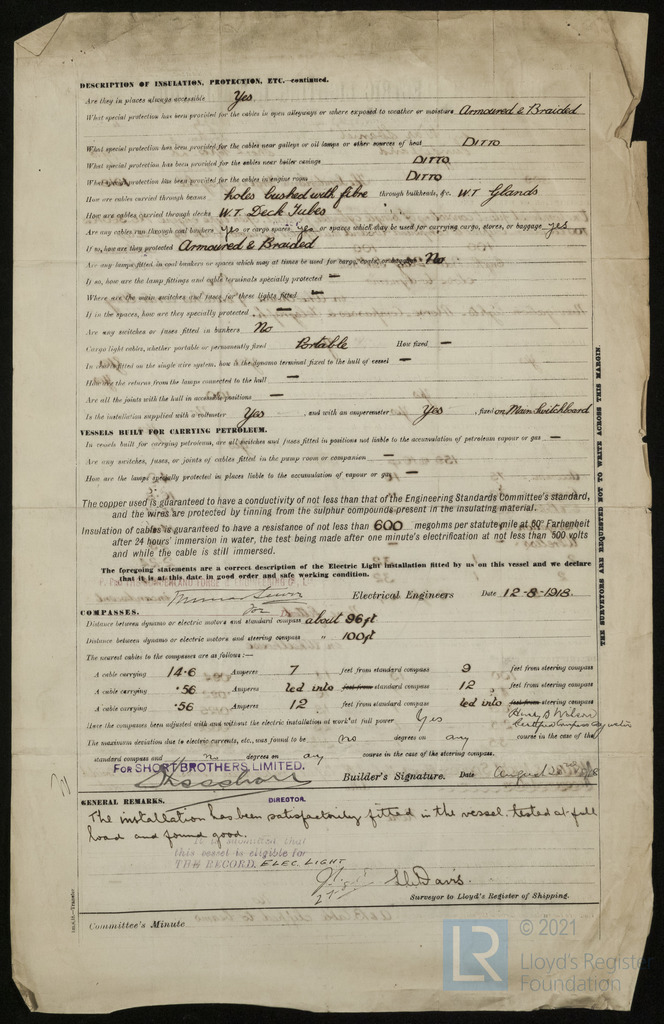 DESCRIPTION OF INSULATION, PROTECTION, ETC.—continued.
Are they in places always accessible Yes
What special protection has been provided for the cables in open alleyways or where exposed to weather or moisture Armoured & Braided
What special protection has been provided for the cables near galleys or oil lamps or other sources of heat DITTO
What special protection has been provided for the cables near boiler casings DITTO
What special protection has been provided for the cables in engine room DITTO
How are cables carried through beams holes bushed with fibre through bulkheads, &c. W.T Glands
How are cables carried through decks W.T. Deck Tubes
Are any cables run through coal bunkers yes or cargo spaces yes or spaces which may be used for carrying cargo, stores, or baggage yes
If so, how are they protected Armoured & Braided
Are any lamps fitted in coal bunkers or spaces which may at times be used for cargo, coals, or baggage No
If so, how are the lamp fittings and cable terminals specially protected —
Where are the main switches and fuses for these lights fitted —
If in the spaces, how are they specially protected —
Are any switches or fuses fitted in bunkers No
Cargo light cables, whether portable or permanently fixed Portable How fixed —
In vessels fitted on the single wire system, how is the dynamo terminal fixed to the hull of vessel —
How are the returns from the lamps connected to the hull —
Are all the joints with the hull in accessible positions —
Is the installation supplied with a voltmeter Yes , and with an amperemeter Yes , fixed on Main Switchboard
VESSELS BUILT FOR CARRYING PETROLEUM.
In vessels built for carrying petroleum, are all switches and fuses fitted in positions not liable to the accumulation of petroleum vapour or gas —
Are any switches, fuses, or joints of cables fitted in the pump room or companion —
How are the lamps specially protected in places liable to the accumulation of vapour or gas —
The copper used is guaranteed to have a conductivity of not less than that of the Engineering Standards Committee's standard,
and the wires are protected by tinning from the sulphur compounds present in the insulating material.
Insulation of cables is guaranteed to have a resistance of not less than 600 megohms per statute mile at 60° Farhenheit
after 24 hours' immersion in water, the test being made after one minute's electrification at not less than 500 volts
and while the cable is still immersed.
The foregoing statements are a correct description of the Electric Light installation fitted by us on this vessel and we declare
that it is at this date in good order and safe working condition.
Electrical Engineers Date 12-8-1918.
COMPASSES.
Distance between dynamo or electric motors and standard compass about 96 ft
Distance between dynamo or electric motors and steering compass " 100 ft
The nearest cables to the compasses are as follows:—
A cable carrying 14.6 Amperes 7 feet from standard compass 9 feet from steering compass
A cable carrying .56 Amperes led into feet from standard compass 12 feet from steering compass
A cable carrying .56 Amperes 12 feet from standard compass led into feet from steering compass
Have the compasses been adjusted with and without the electric installation at work at full power Yes Henry D Wilson
Certified Compass Adjuster
The maximum deviation due to electric currents, etc., was found to be no degrees on any course in the case of the
standard compass and no degrees on any course in the case of the steering compass.
FOR SHORT BROTHERS LIMITED.
Builder's Signature. Date August 20th 1918
DIRECTOR
GENERAL REMARKS.
The installation has been satisfactorily fitted in the vessel, tested at full
load and found good.
It is submitted that
this vessel is eligible for
THE RECORD. ELEC. LIGHT
Davis.
Surveyor to Lloyd's Register of Shipping.
Committee's Minute
THE SURVEYORS ARE REQUESTED NOT TO WRITE ACROSS THIS MARGIN.
LR
© 2021
Lloyd's Register
Foundation